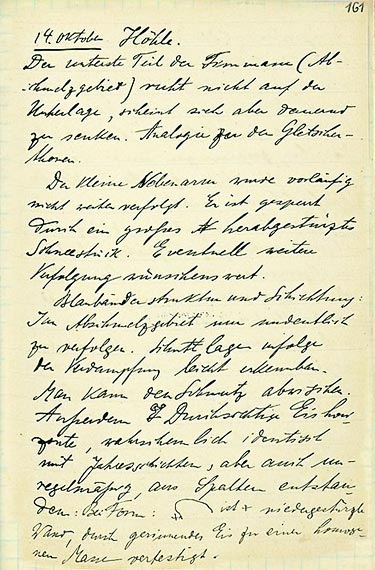 161
14. Oktober Höhle.
Der unterste Teil der Firnmasse (Ab-
schmelzgebiet) ruht nicht auf der
Unterlage, scheint sich aber dauernd
zu senken. Analogie zu den Gletscher-
Der kleine Nebenarm wurde vorläufig
nicht weiter verfolgt. Er ist gesperrt
durch ein großes herabgestürztes
Schneestück. Eventuell weitere
Verfolgung wünschenswert.
Blaubänderstruktur und Schichtung:
Im Abschmelzgebiet nur undeutlich
zu verfolgen. Schuttlagen infolge
der Verdampfung leicht erkennbar.
Man kann den Schmutz abwischen.
Außerdem Durchsichtige Eishori-
zonte, wahrscheinlich identisch
mit Jahresschichten, aber auch un-
regelmäßig, aus Spalten entstan-
den: bei Form: ist niedergestürzte
Wand, durch gerinnendes Eis zu einer homoge-
nen Masse verfestigt.